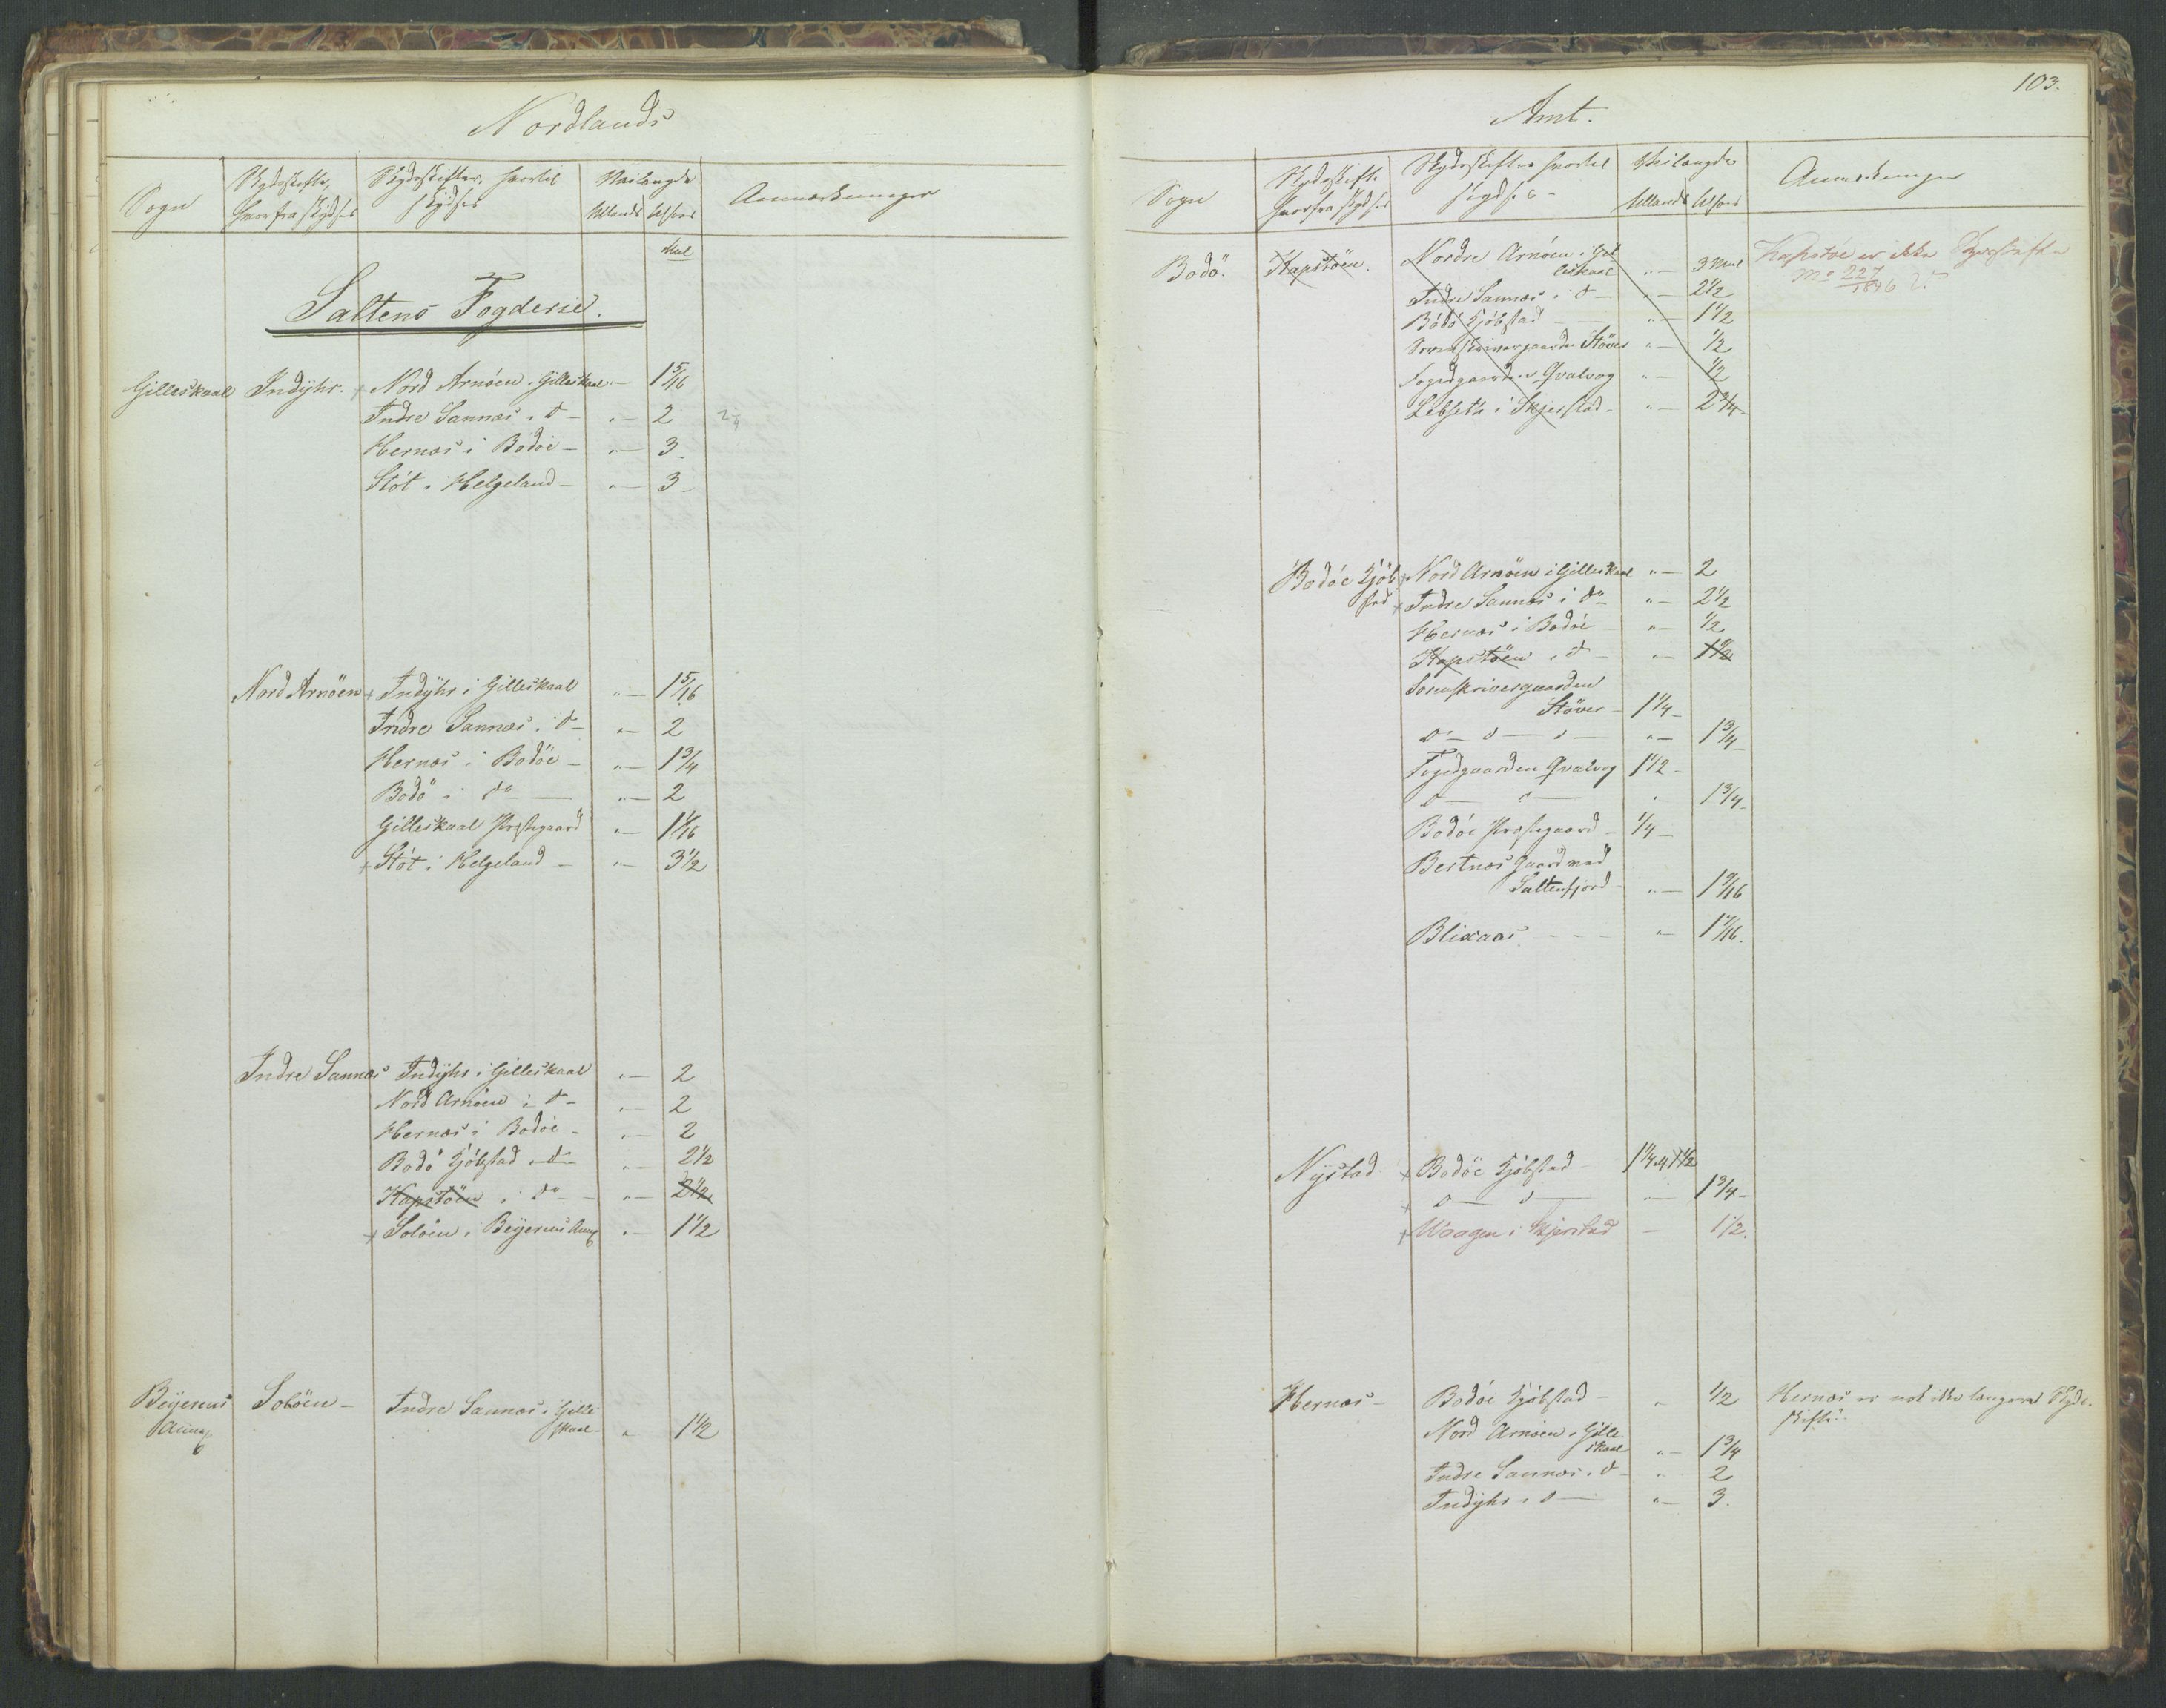 Nordlands
Sogn
Skydsskifte, hvorfra skydses
Skydsskifter, hvortil skydses
Veilængde
tillands tilsøes
Anmærkninger
Miil
Saltens Fogderie.
Gilleskaal Indÿhr. + Nord Arnöen i Gilleskaal " — 1 5/16
Indre Sannæs i d — " — 2
Hernæs i Bodöe — " — 3
Stöt i Helgeland — " — 3
Nord Arnöen + Indÿhr i Gilleskaal " — 1 5/16
Indre Sannæs i d — " — 2
Hernæs i Bodöe — " — 1 3/4
Bodö i do — " — 2
Gilleskaal Præstegaard " —
+ Stöt i Helgeland — " — 3 1/2
Indre Sannæs Indÿhr i Gilleskaal " — 2
Nord Arnöen i d — " — 2
Hernæs i Bodöe — " — 2
Bodö Kjöbstad i d — " — 2 1/2
Kapstöen i do — " — 2 1/2
+ Solöen i Beÿerens Annex " — 1 1/2
Beÿerens Solöen — Indre Sannæs i Gille
Annex skaal — " 1 1/2
103.
Amt.
Sogn
Skydsskifte hvorfra skydses
Skydsskifter hvortil skydses —
Veilængde
tillands tilsøes
Anmærkninger
Bodö. Kapstöen. Nordre Arnöen i Gil
leskaal " — 3 Miil Kapstöe er ikke Skydsskifte
Indre Sannæs i d — " — 2 1/2 227/1846
Bodö Kjöbstad — " — 1 1/2
Sorenskrivergaarden Stöver " — 1/2
Fogedgaarden Qvalvog " — 1/2
Löbseth i Skjerstad — " — 2 3/4
Bodöe Kjöb + Nord Arnöen i Gilleskaal " — 2
stad + Indre Sannæs i do " — 2 1/2
Hernæs i Bodöe " — 1/2
Kapstöen i d — " — 1 1/2
Sorenskrivergaarden
Stöver — 1 1/4 —
d — d — d — " — 1 3/4
Fogedgaarden Qvalvog 1 1/2 —
d — d — " 1 3/4
Bodöe Præstegaard — 1/4 —
Bertnæs Gaard ved
Saltenfjord — " —
Blixaas — — — " —
Nÿstad + Bodöe Kjöbstad — 1 1/4 M 1 1/2
+ d — d — " — 1 3/4 —
+ Waagen i Skjerstad — 1 1/2.
Hernæs — Bodöe Kjöbstad — " 1/2 Hernæs er nok ikke længere Skyds
skifte.
Nord Arnöen i Gille
skaal " — 1 3/4
Indre Sannæs i d — " 2
Indÿhr i d — " — 3.